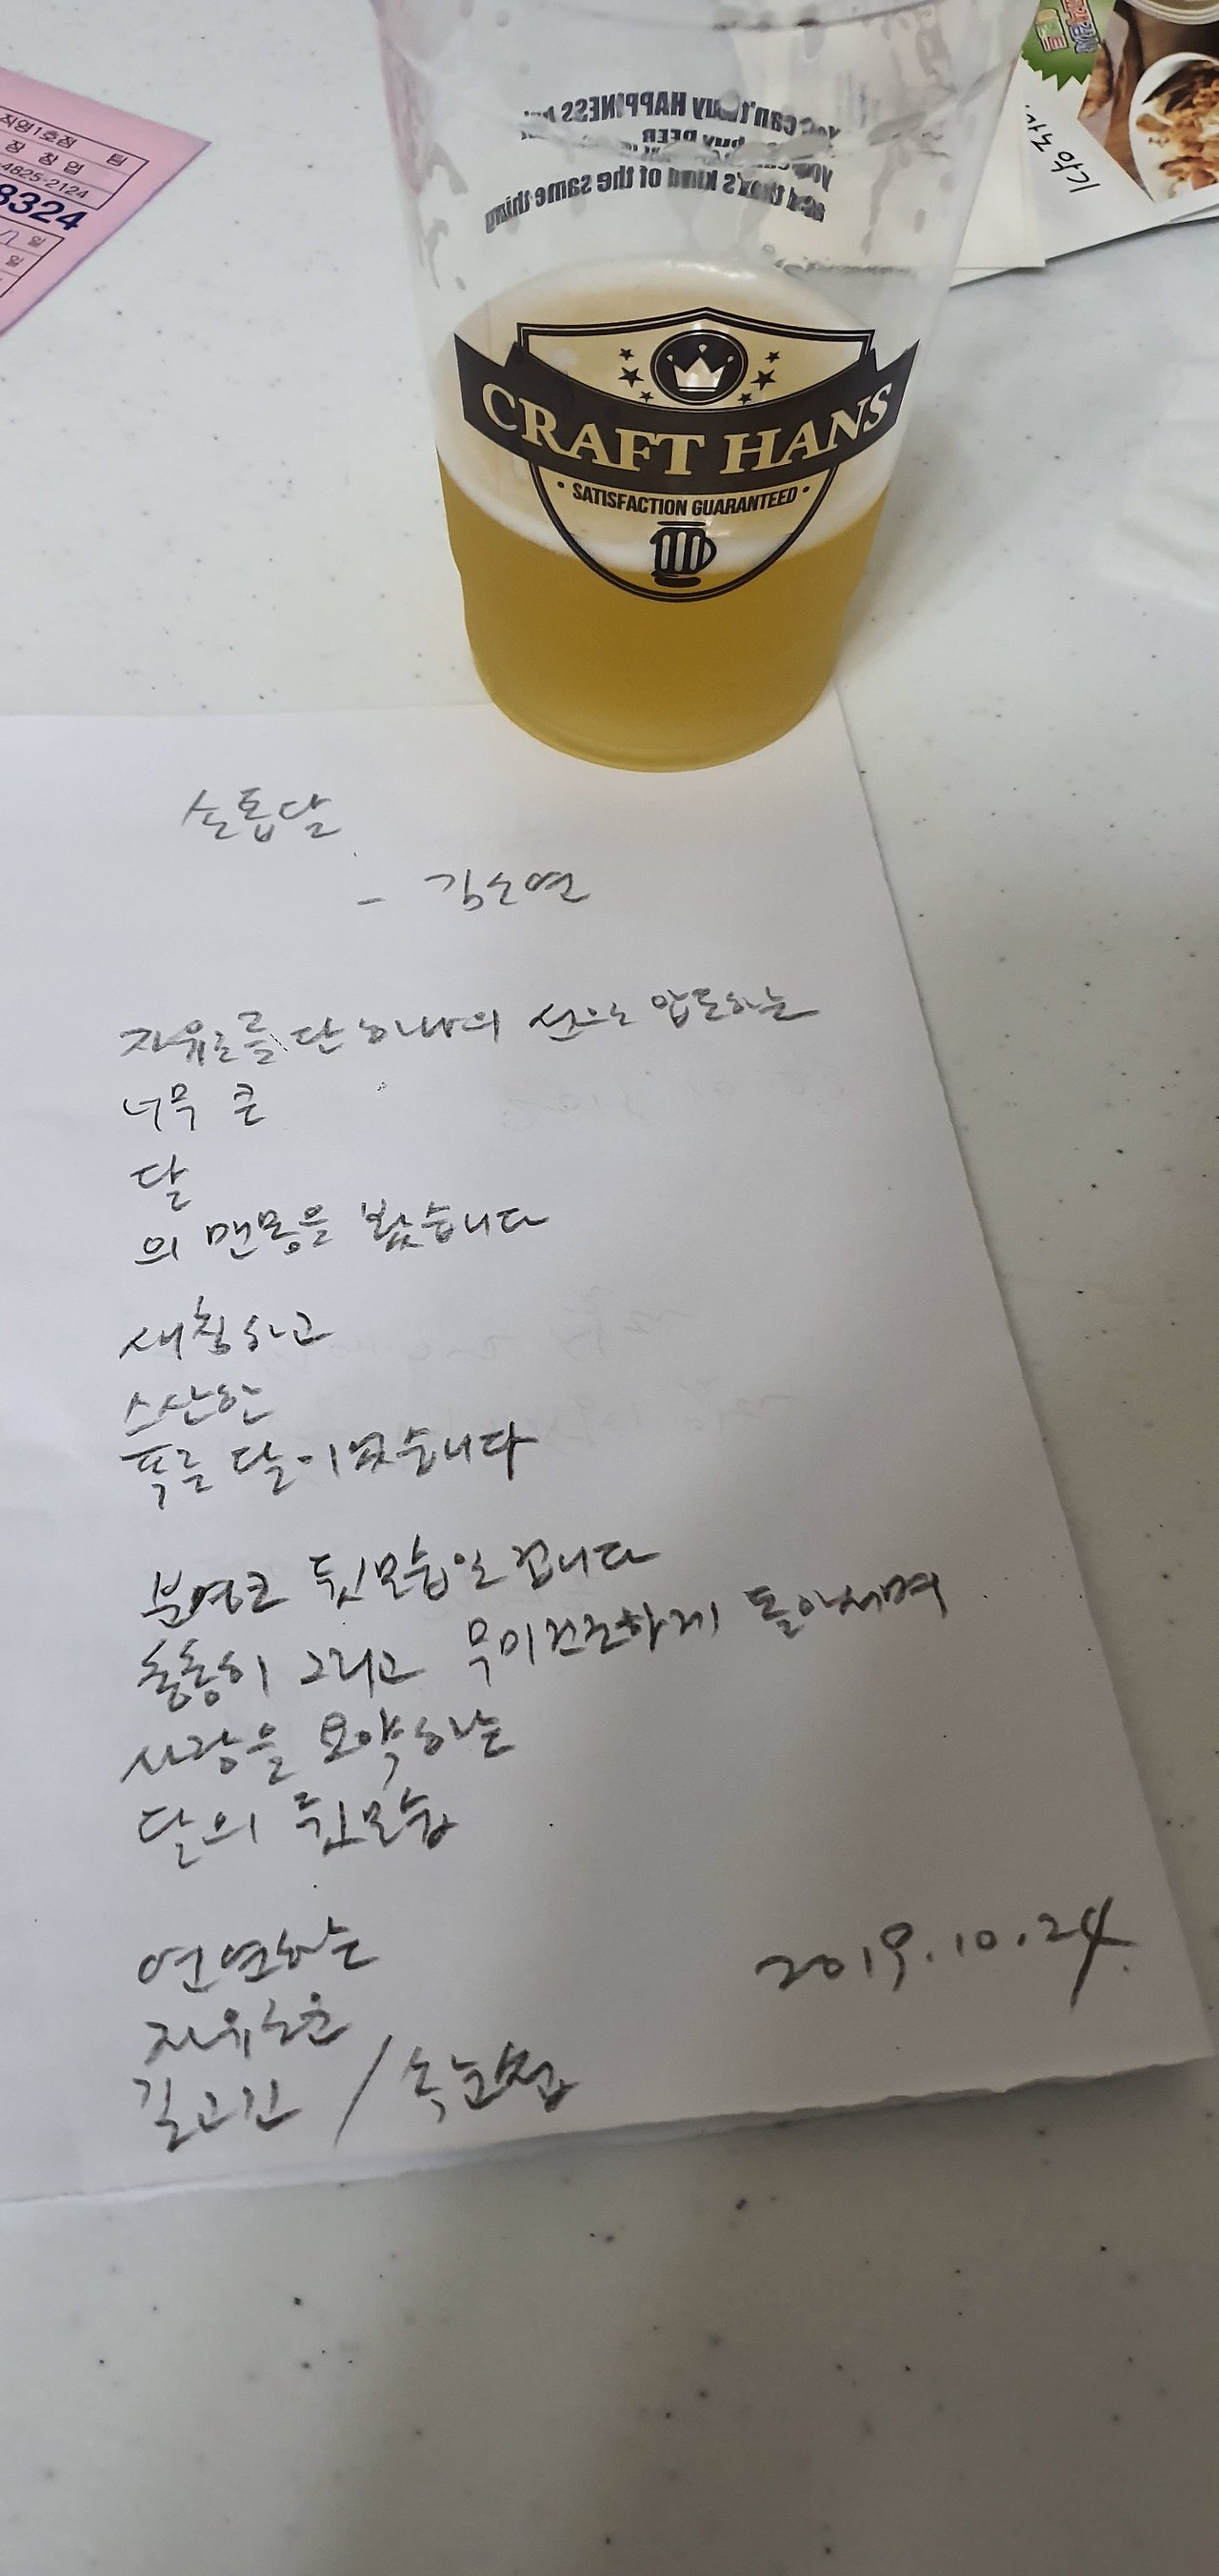 직영1호점
점 창업
4825-2124
8324
일
일
You can't buy HAPPINESS
buy BEER
and that's kind of the same thing
CRAFT HANS
• SATISFACTION GUARANTEED •
손톱달
- 김소연
자유로를 단 하나의 선으로 압도하는
너무 큰
달
의 맨몸을 봤습니다
새침하고
스산한
푸른 달이었습니다
분명코 뒷모습일 겁니다
총총히 그리고 무미건조하게 돌아서며
사랑을 요약하는
달의 뒷모습
연연하는
자유로운
길고긴 / 속눈썹
2019.10.24.